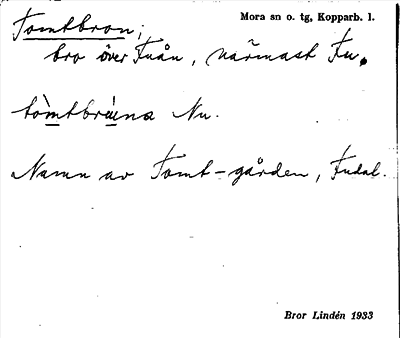 Tomtbron;
Mora sn o. tg, Kopparb. l.
bro över Fuån, närmast Fu.
tòmtbrúna Nu.
Namn av Tomt-gården, Fudal.
Bror Lindén 1933